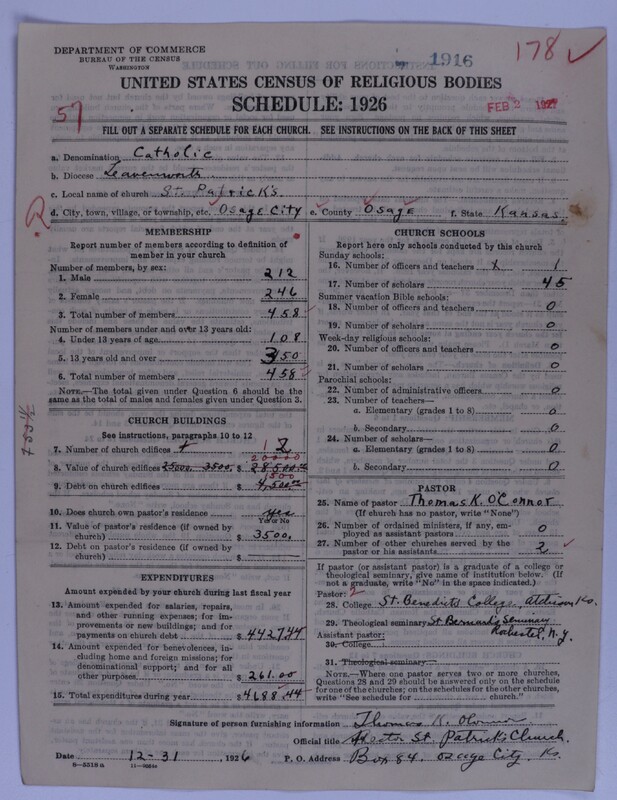 DEPARTMENT OF COMMERCE
BUREAU OF THE CENSUS
WASHINGTON
1916
178 ✓
UNITED STATES CENSUS OF RELIGIOUS BODIES
SCHEDULE: 1926
57
FEB 2 1927
FILL OUT A SEPARATE SCHEDULE FOR EACH CHURCH. SEE INSTRUCTIONS ON THE BACK OF THIS SHEET
a. Denomination Catholic
b. Diocese Leavenworth
c. Local name of church St. Patrick's
d. City, town, village, or township, etc. Osage City e. County Osage f. State Kansas.
MEMBERSHIP
Report number of members according to definition of
member in your church
Number of members, by sex:
1. Male 212
2. Female 246
3. Total number of members 458
Number of members under and over 13 years old:
4. Under 13 years of age 108
5. 13 years old and over 350
6. Total number of members 458
NOTE.—The total given under Question 6 should be the
same as the total of males and females given under Question 3.
CHURCH BUILDINGS
See instructions, paragraphs 10 to 12
7. Number of church edifices 1 2
20000
8. Value of church edifices 25000. 3500. $ 28500.00
1500
9. Debt on church edifices $ 4,500.00
10. Does church own pastor's residence yes
Yes or No
11. Value of pastor's residence (if owned by
church) $ 3500.
12. Debt on pastor's residence (if owned by
church) $
EXPENDITURES
Amount expended by your church during last fiscal year
13. Amount expended for salaries, repairs,
and other running expenses; for im-
provements or new building; and for
payments on church debt $ 4427.44
14. Amount expended for benevolences, in-
cluding home and foreign missions; for
denominational support; and for all
other purposes $ 261.00
15. Total expenditures during year $ 4688.44
CHURCH SCHOOLS
Report here only schools conducted by this church
Sunday schools:
16. Number of officers and teachers 1
17. Number of scholars 45
Summer vacation Bible schools:
18. Number of officers and teachers 0
19. Number of scholars 0
Week-day religious schools:
20. Number of officers and teachers 0
21. Number of scholars 0
Parochial schools:
22. Number of administrative officers 0
23. Number of teachers—
a. Elementary (grades 1 to 8) 0
b. Secondary 0
24. Number of scholars—
a. Elementary (grades 1 to 8) 0
b. Secondary 0
PASTOR
25. Name of pastor Thomas K. O'Connor
(If church has no pastor, write "None")
26. Number of ordained ministers, if any, em-
ployed as assistant pastors 0
27. Number of other churches served by the
pastor or his assistants 2 ✓
If pastor (or assistant pastor) is a graduate of a college or
theological seminary, give name of institution below. (If
not a graduate, write "No" in the space indicated.)
Pastor: 2
28. College St. Benedicts College, Atchison Ks.
29. Theological seminary St Bernard's Seminary
Assistant pastor: Rochester, N.Y.
30. College
31. Theological seminary
NOTE.—Where one pastor serves two or more churches,
Questions 28 and 29 should be answered only on the schedule
for one of the churches; on the schedules for the other churches,
write "See schedule for church."
Signature of person furnishing information Thomas K. O'Connor
Official title Rector St. Patrick's Church.
Date 12-31, 1926 P. O. Address Box 84. Osage City, Ks.
8-5518a